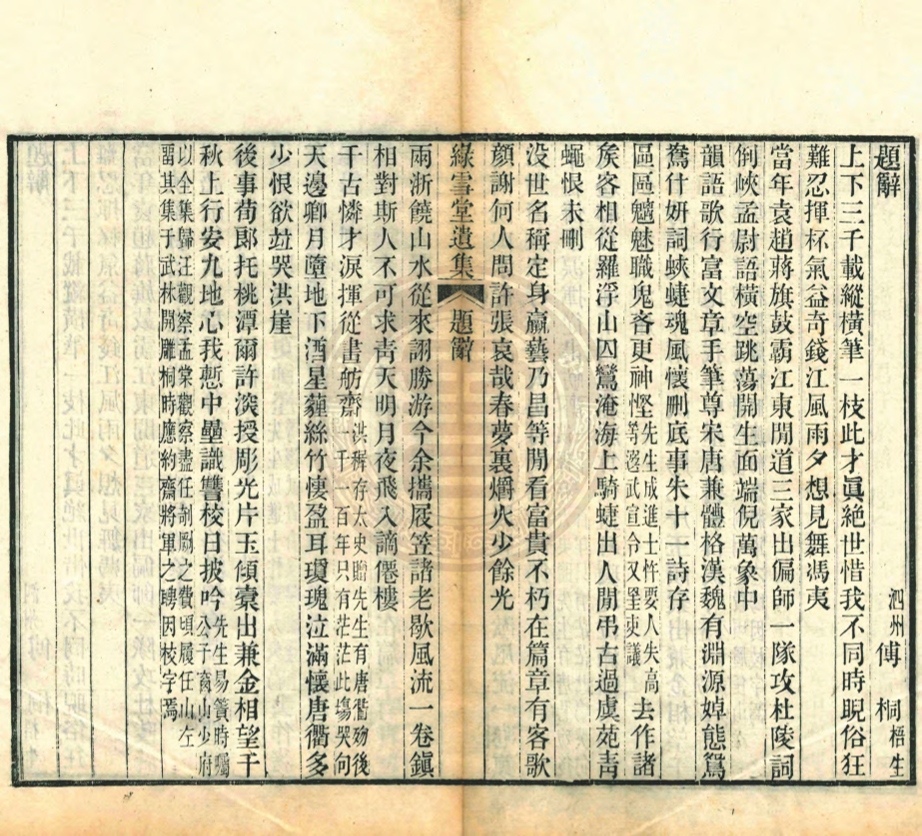 題辭
泗州傅 桐梧生
上下三千載縱橫筆一枝此才眞絶世惜我不同時睨俗狂
難忍揮杯氣益奇錢江風雨夕想見舞馮夷
當年袁趙蔣旗鼓霸江東閒道三家出偏師一隊攻杜陵詞
倒峽孟尉語橫空跳蕩開生面端倪萬象中
韻語歌行富文章手筆尊宋唐兼體格漢魏有淵源婥態鴛
鴦什妍詞蛺蜨魂風懷刪底事朱十一詩存
區區魑魅職鬼吝更神慳先生成進士忤要人失高等盩武宣令又罣吏議去作諸
矦客相從羅浮山囚鸞淹海上騎蜨出人閒弔古過虞苑靑
蠅恨未刪
没世名稱定身羸藝乃昌等閒看富貴不朽在篇章有客歌
顏謝何人問許張哀哉春夢裏爝火少餘光
綠雪堂遺集 題辭
兩浙饒山水從來詡勝游今余攜屐笠諸老歇風流一卷鎭
相對斯人不可求靑天明月夜飛入謫僊樓
千古憐才淚揮從書舫齋洪稺存太史贈先生有唐衢殁後一千一百年只有茫茫此塲哭句
天邊卿月墮地下酒星薶絲竹悽盈耳瓊瑰泣滿懷唐衢多
少恨欲竝哭洪崖
後事荀郞托桃潭爾許湥授彫光片玉傾橐出兼金相望千
秋上行安九地心我慙中壘識讐校日披吟先生易簀時囑公子商山少府
以全集歸汪觀察孟棠觀察盡任剞劂之費頃履任山左
畱其集于武林開雕桐時應約齋將軍之聘因校字焉